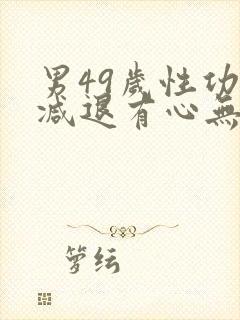 男49歲性功
減退有心無
箩纭